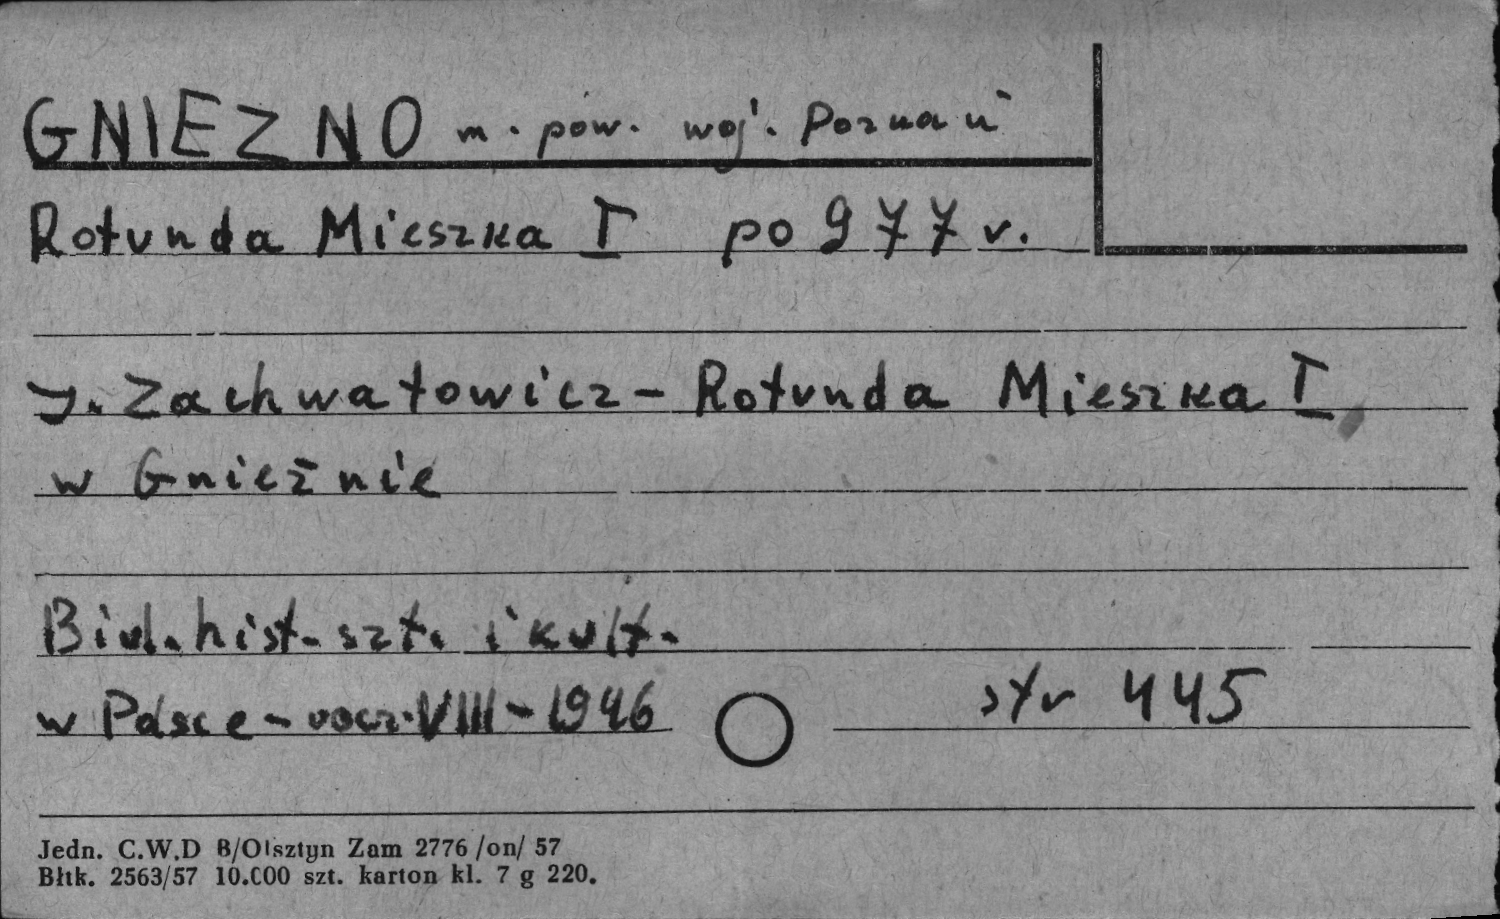 GNIEZNO m. pow. woj. Poznań
Rotunda Mieszka I po 977 r.
J. Zachwatowicz - Rotunda Mieszka I
w Gnieźnie
Biul. hist. szt. i kult.
w Polsce - rocz. VIII - 1946 str 445
Jedn. C.W.D B/Olsztyn Zam 2776 /on/ 57
Błtk. 2563/57 10.000 szt. karton kl. 7 g 220.